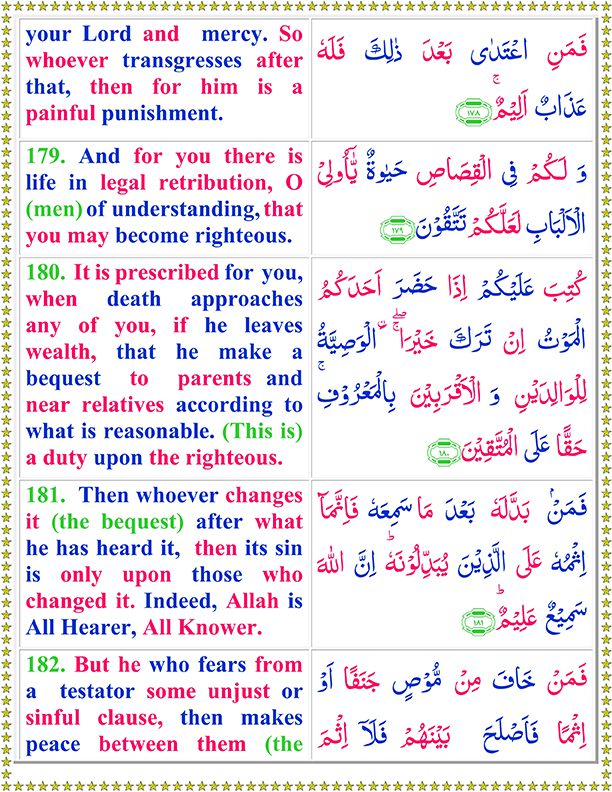 your Lord and mercy. So
whoever transgresses after
that, then for him is a
painful punishment.
فَمَنِ اعْتَدٰى بَعْدَ ذٰلِكَ فَلَهٗ
عَذَابٌ اَلِيْمٌ ۚ ١٧٨
179. And for you there is
life in legal retribution, O
(men) of understanding, that
you may become righteous.
وَ لَكُمْ فِي الْقِصَاصِ حَيٰوةٌ يّٰۤاُولِي
الْاَلْبَابِ لَعَلَّكُمْ تَتَّقُوْنَ ١٧٩
180. It is prescribed for you,
when death approaches
any of you, if he leaves
wealth, that he make a
bequest to parents and
near relatives according to
what is reasonable. (This is)
a duty upon the righteous.
كُتِبَ عَلَيْكُمْ اِذَا حَضَرَ اَحَدَكُمُ
الْمَوْتُ اِنْ تَرَكَ خَيْرَا ۖۚ ۟الْوَصِيَّةُ
لِلْوَالِدَيْنِ وَ الْاَقْرَبِيْنَ بِالْمَعْرُوْفِ ۚ
حَقًّا عَلَى الْمُتَّقِيْنَ ١٨٠
181. Then whoever changes
it (the bequest) after what
he has heard it, then its sin
is only upon those who
changed it. Indeed, Allah is
All Hearer, All Knower.
فَمَنْۢ بَدَّلَهٗ بَعْدَ مَا سَمِعَهٗ فَاِنَّمَاۤ
اِثْمُهٗ عَلَى الَّذِيْنَ يُبَدِّلُوْنَهٗ ؕ اِنَّ اللّٰهَ
سَمِيْعٌ عَلِيْمٌ ؕ ١٨١
182. But he who fears from
a testator some unjust or
sinful clause, then makes
peace between them (the
فَمَنْ خَافَ مِنْ مُّوْصٍ جَنَفًا اَوْ
اِثْمًا فَاَصْلَحَ بَيْنَهُمْ فَلَاۤ اِثْمَ